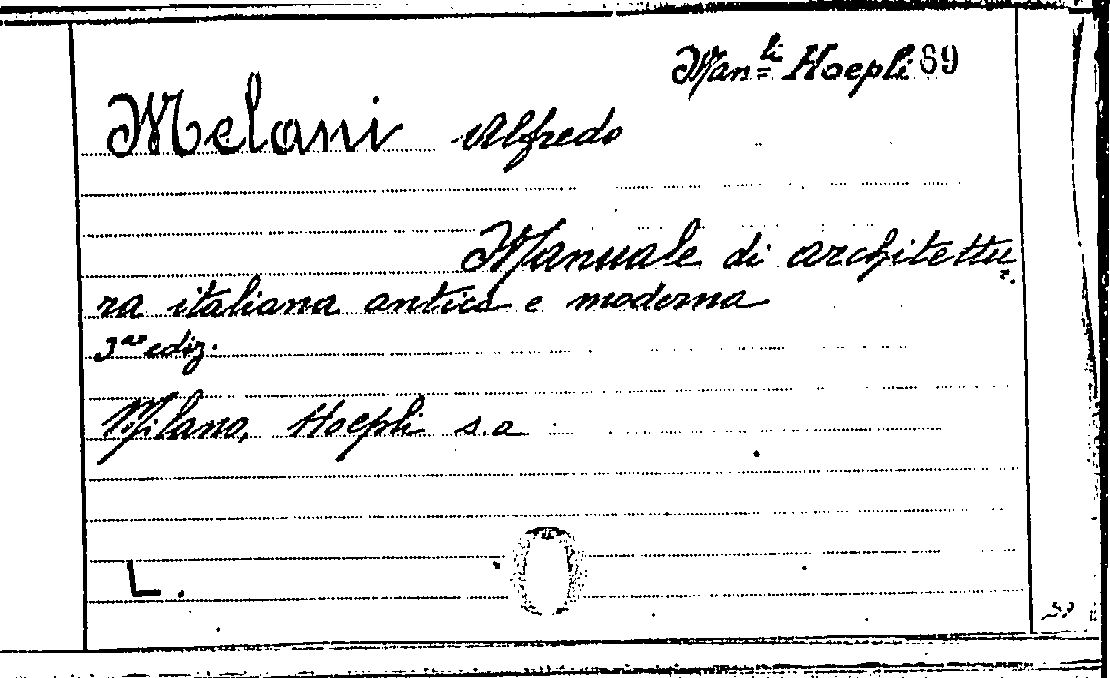 Man.li Hoepli 69
Melani Alfredo
Manuale di architettu
ra italiana antica e moderna
3a ediz.
Milano, Hoepli s.a
L.